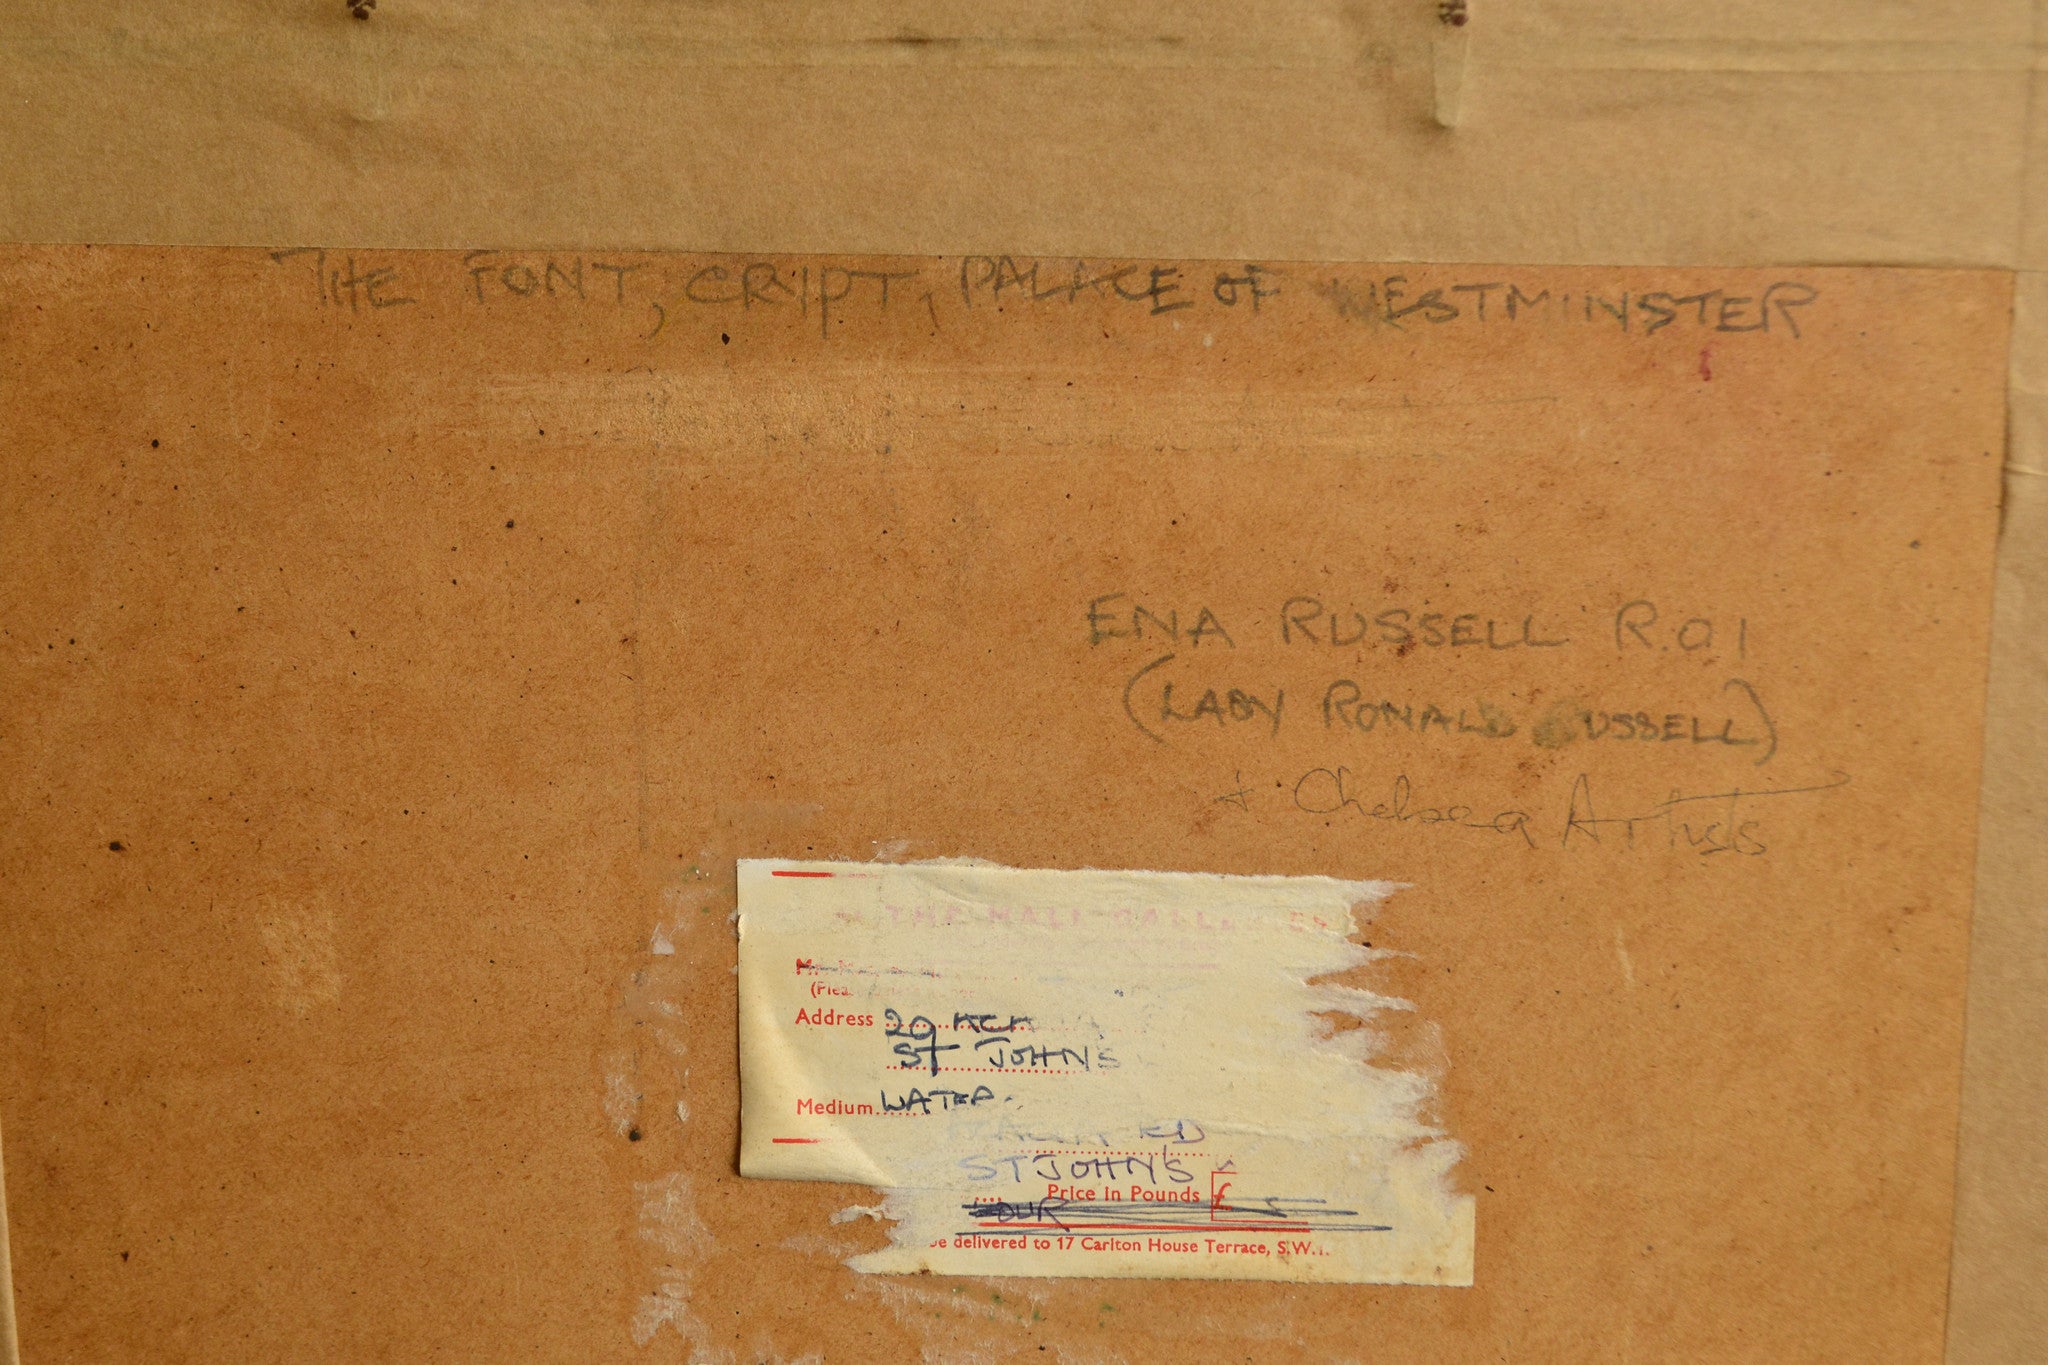 THE FONT, CRYPT, PALACE OF WESTMINSTER
ENA RUSSELL R.O.I
(LADY RONALD RUSSELL)
+ Chelsea Artists
THE MALL GALLERIES
Address 29
ST JOHN'S
Medium WATER
ST JOHN'S
Price in Pounds £
be delivered to 17 Carlton House Terrace, S.W.1.